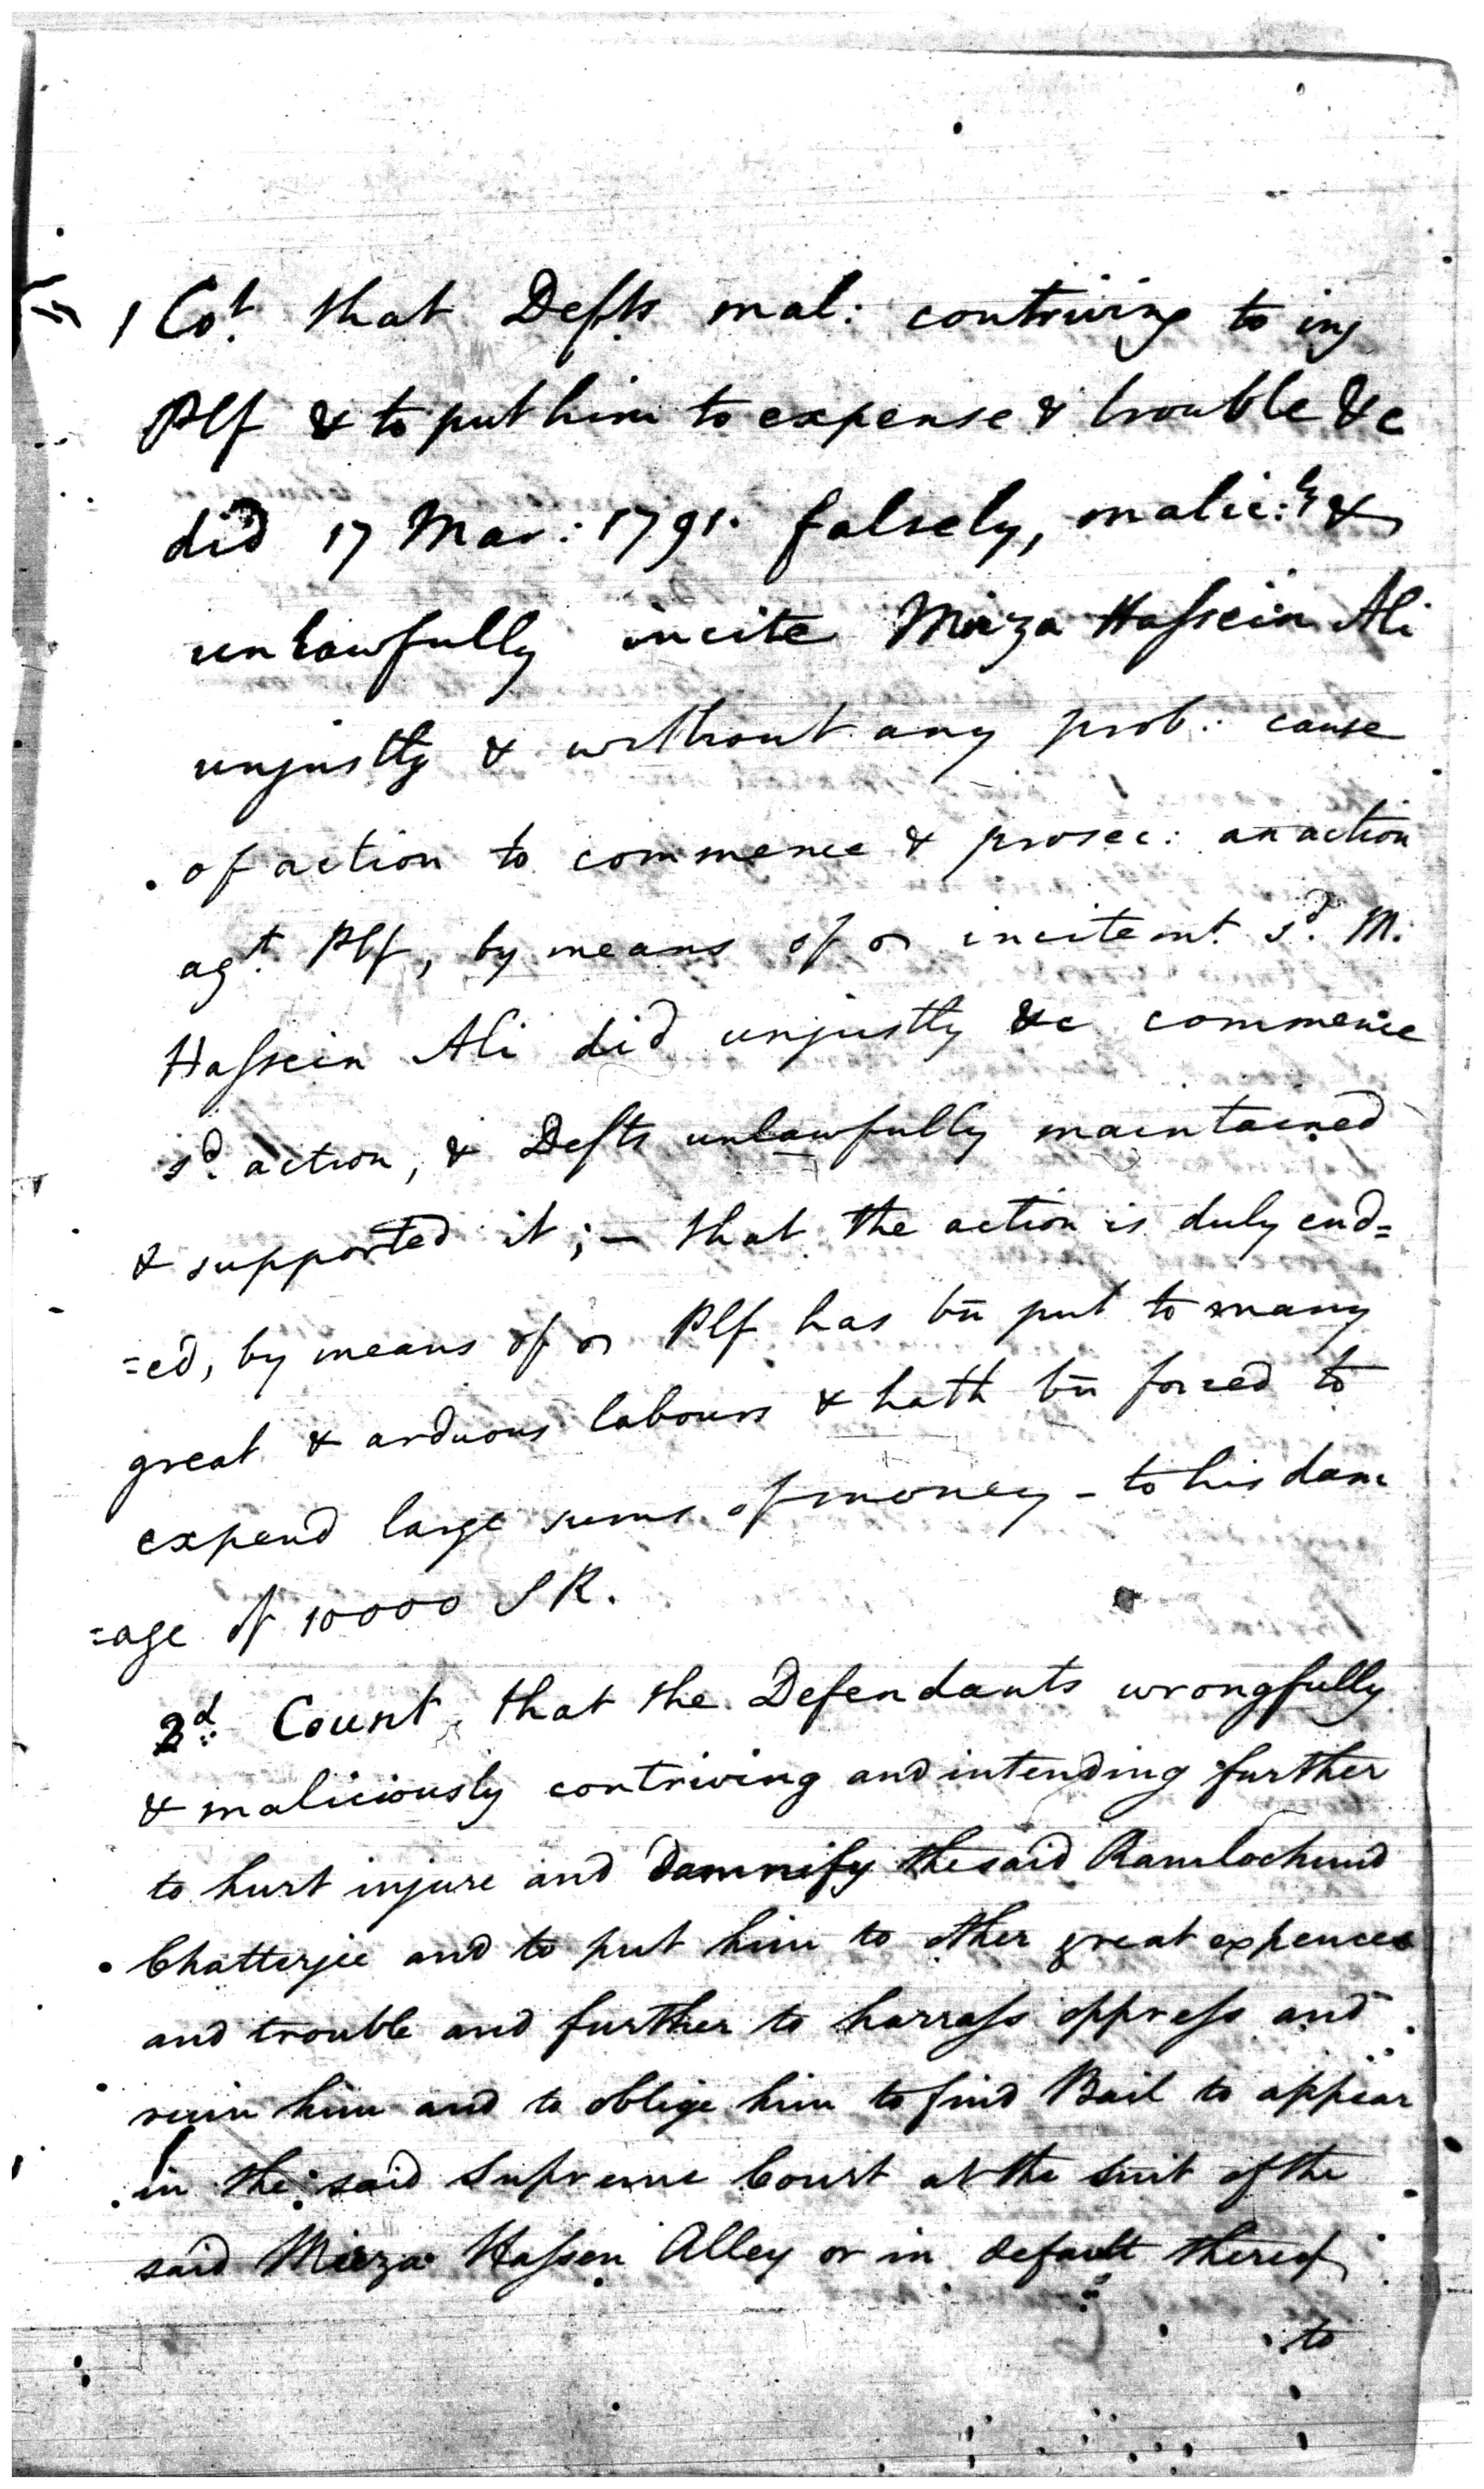 1 Cot. that Defts mal: contriving to inj
Plf & to put him to expense & trouble &c
did 17 Mar: 1791. falsely, malic:ly &
unlawfully incite Mirza Hassein Ali
unjustly & without any prob: cause
of action to commence & prosec: an action
agt. Plf, by means of incitemt. sd. M.
Hassein Ali did unjustly &c commence
sd. action, & Defts unlawfully maintained
& supported it; — that the action is duly end=
=ed, by means of Plf has bn put to many
great & arduous labours & hath bn forced to
expend large sums of money - to his dam
=age of 10000 SR.
2d: Count, that the Defendants wrongfully
& maliciously contriving and intending further
to hurt injure and damnify the said Ramlochund
Chatterjee and to put him to other great expences
and trouble and further to harrass oppress and
ruin him and to oblige him to find Bail to appear
in the said Supreme Court at the suit of the
said Mirza Hassen Alley or in default thereof
to